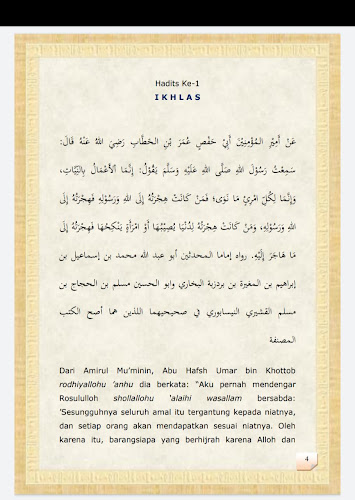 Hadits Ke-1
I K H L A S
عَنْ أَمِيْرِ المُؤْمِنِيْنَ أَبِيْ حَفْصٍ عُمَرَ بْنِ الخَطَّابِ رَضِيَ اللهُ عَنْهُ قَالَ:
سَمِعْتُ رَسُوْلَ اللهِ صَلَّى اللهِ عَلَيْهِ وَسَلَّمَ يَقُوْلُ: إِنَّمَا الْأَعْمَالُ بِالنِّيَّاتِ،
وَإِنَّمَا لِكُلِّ امْرِئٍ مَا نَوَى؛ فَمَنْ كَانَتْ هِجْرَتُهُ إِلَى اللهِ وَرَسُوْلِهِ فَهِجْرَتُهُ إِلَى
اللهِ وَرَسُوْلِهِ، وَمَنْ كَانَتْ هِجْرَتُهُ لِدُنْيَا يُصِيْبُهَا أَوْ امْرَأَةٍ يَنْكِحُهَا فَهِجْرَتُهُ إِلَى
مَا هَاجَرَ إِلَيْهِ. رواه إماما المحدثين أبو عبد الله محمد بن إسماعيل بن
إبراهيم بن المغيرة بن بردزبة البخاري وابو الحسين مسلم بن الحجاج بن
مسلم القشيري النيسابوري في صحيحيهما اللذين هما أصح الكتب
المصنفة
Dari Amirul Mu'minin, Abu Hafsh Umar bin Khottob
rodhiyallohu 'anhu dia berkata: "Aku pernah mendengar
Rosululloh shollallohu 'alaihi wasallam bersabda:
'Sesungguhnya seluruh amal itu tergantung kepada niatnya,
dan setiap orang akan mendapatkan sesuai niatnya. Oleh
karena itu, barangsiapa yang berhijrah karena Alloh dan
4